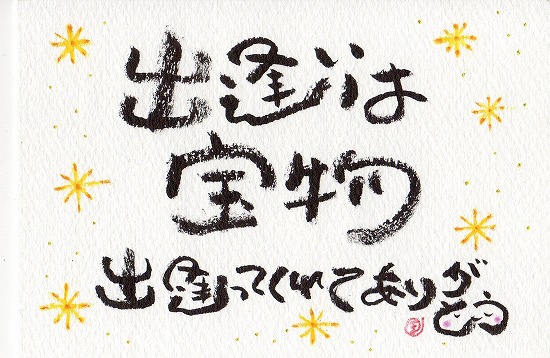 出逢いは
宝物
出逢ってくれてありがとう